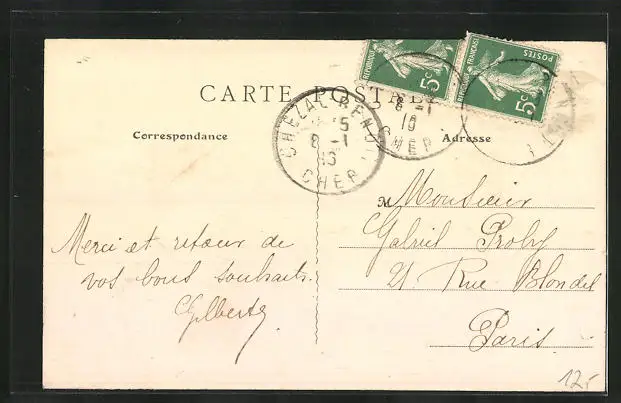 CARTE POSTALE
RÉPUBLIQUE
5c
RÉPUBLIQUE FRANÇAISE
POSTES
5c
CHEZAL-BENOIT
8 -1
CHER
8 -1
10
CHER
Correspondance
Adresse
M Monsieur
Gabriel Proby
21 Rue Blondel
Paris
Merci et retour de
vos bons souhaits.
Gilberte
12,-